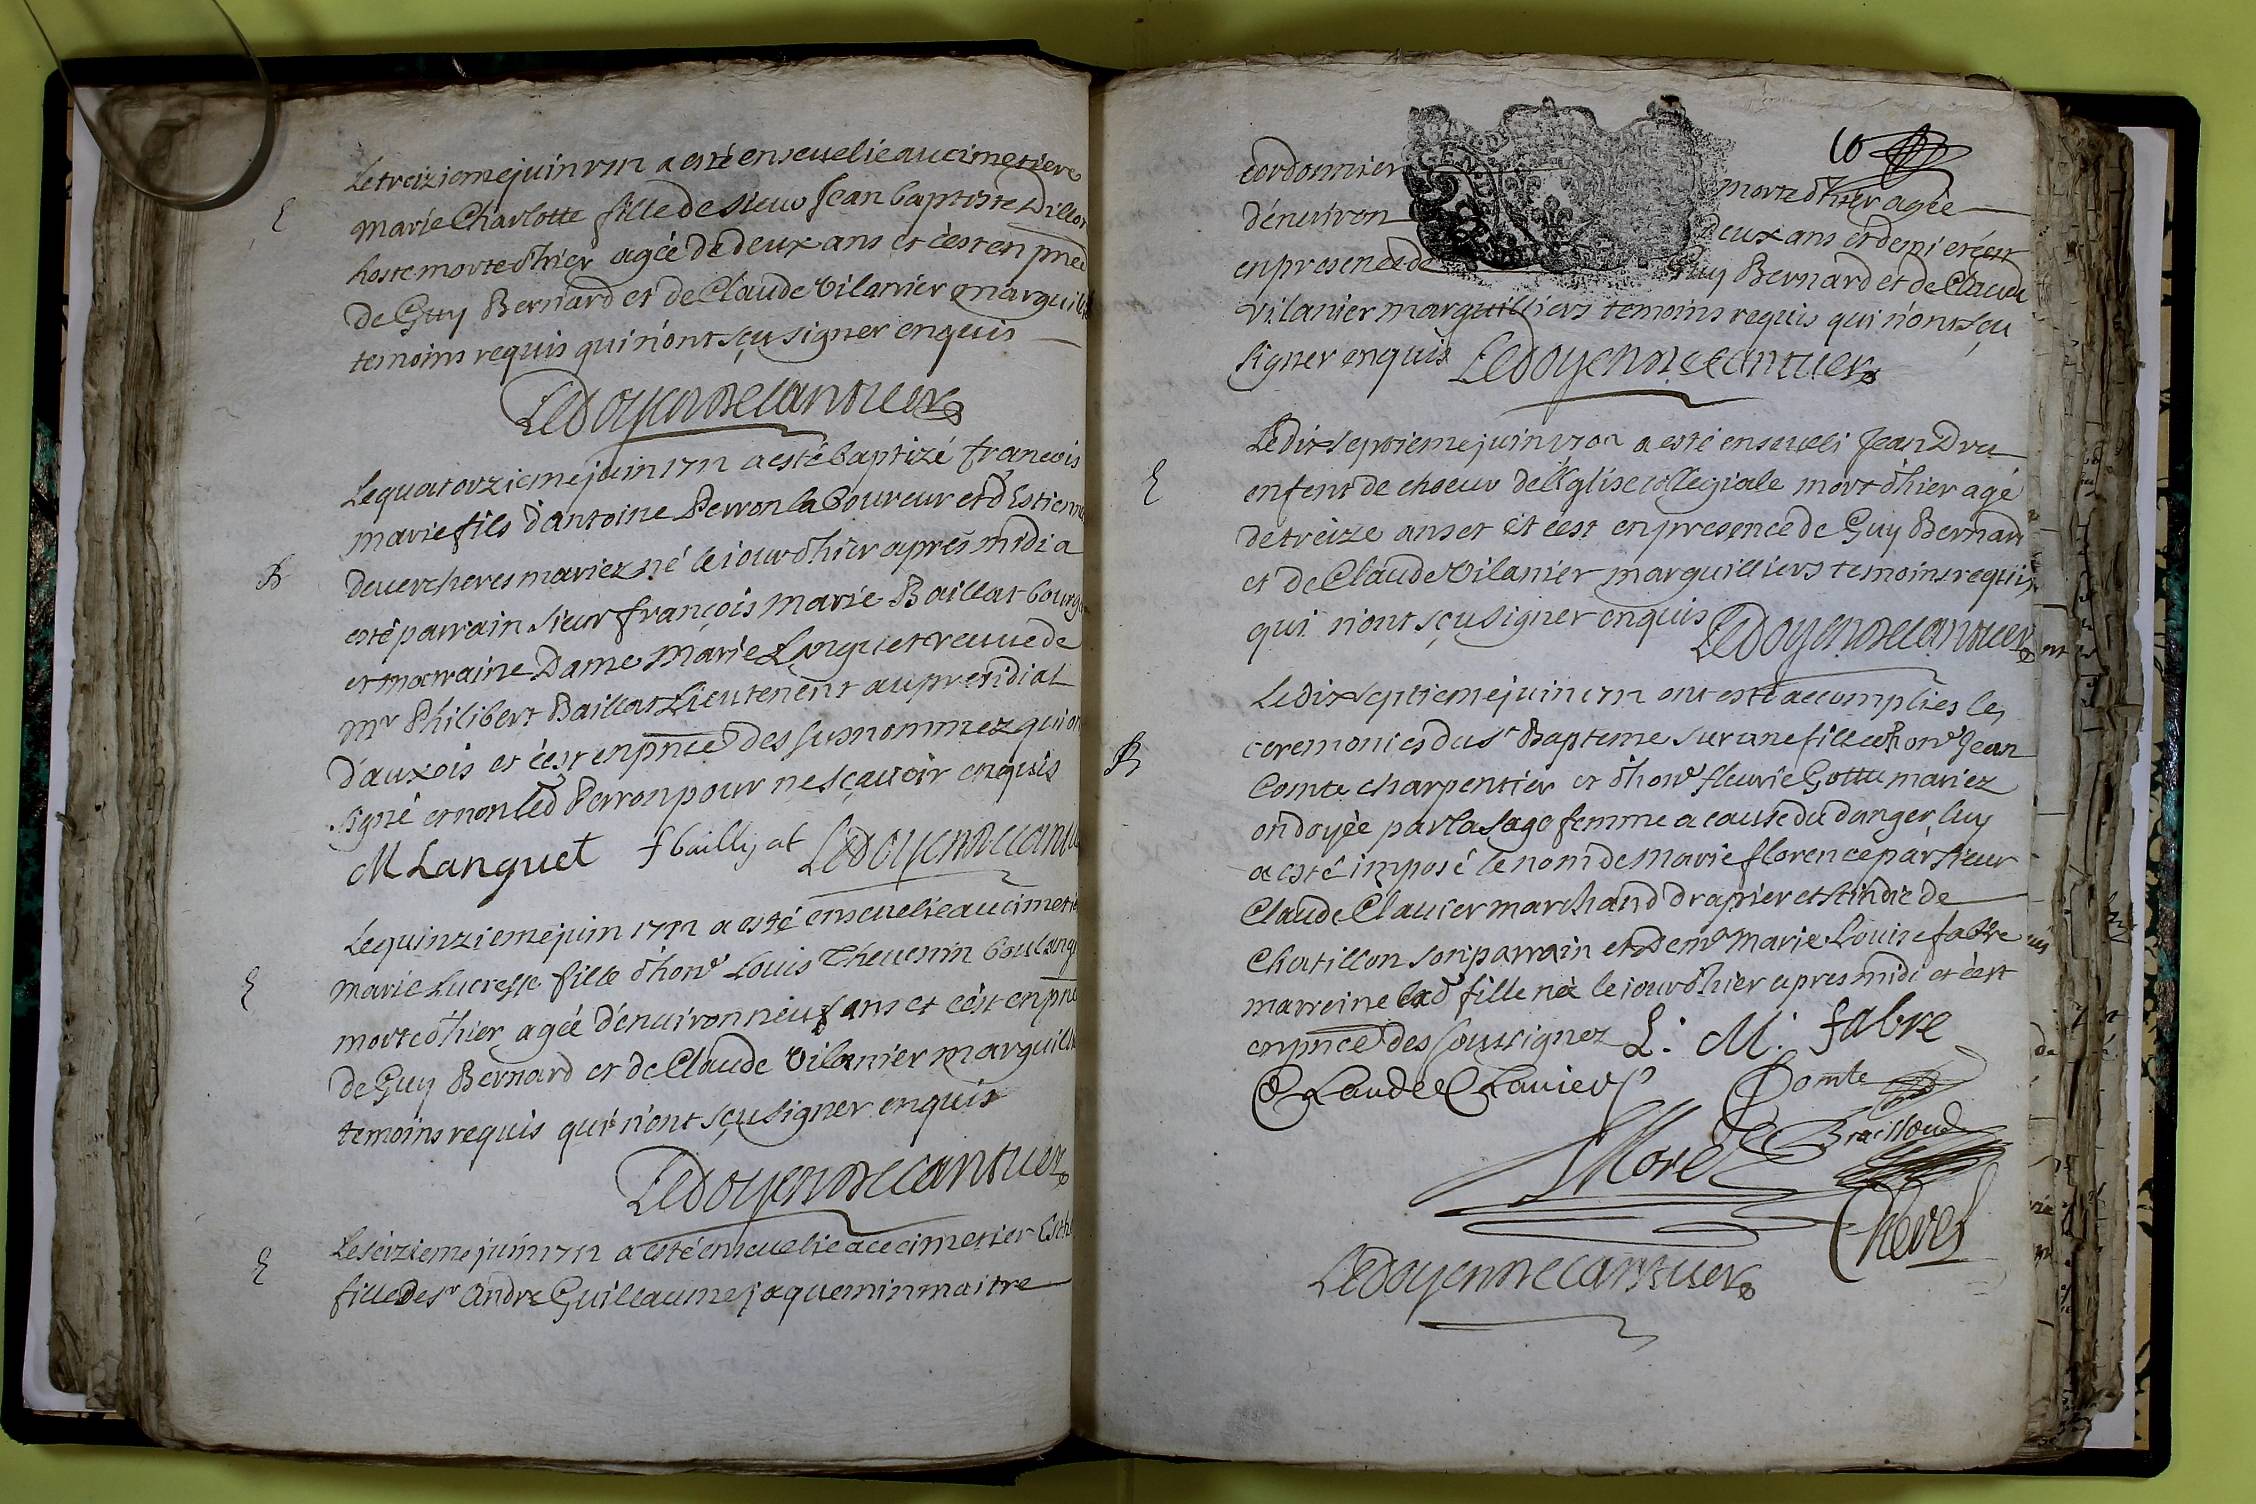 Le treizieme juin 1712 a esté ensevelie au cimetiere
E
Marie Charlotte fille de sieur Jean baptiste Dillon
hoste morte d'hier agée de deux ans et c'est en pnce
de Guy Bernard et de Claude Vilanier marguil
temoins requis qui n'ont sçu signer enquis
Ledoyen Decantuer
Le quatorzieme juin 1712 a esté baptizé francois
marie fils d'antoine Perron laboureur et d'Estienne
B
devercheres mariez né le jour d'hier apres midi a
esté parrain sieur françois marie Baillat bourg
et marraine Dame Marie Languet veuve de
Mr Philibert Baillat Lieutenent au presidial
d'auxois et c'est en pnce des susnommez qui on
signé et non led Perron pour ne sçavoir enquis
M Languet f bailly at Ledoyen Decantu
Le quinzieme juin 1712 a esté ensevelie au cimetie
E
Marie Lucresse fille d'honé Louis Thevenin boulang
morte d'hier agée d'environ neuf ans et c'est en pnce
de Guy Bernard et de Claude Vilanier marguil
temoins requis qui n'ont sçu signer enquis
Ledoyen Decantuer
Le seizieme juin 1712 a esté ensevelie a ce cimetier
E
fille de sr André Guillaume jaquemin maitre
10
cordonnier morte d'hier agée
d'environ deux ans et demi et c'est
en presence de Guy Bernard et de Claude
Vilanier marguilliers temoins requis qui n'ont sçu
signer enquis Ledoyen Decantuer
Le dix septieme juin 1702 a esté enseveli Jean Dru
E
enfent de choeur de l'Eglise collegiale mort d'hier agé
de treize ans et et c'est en presence de Guy Bernard
et de Claude Vilanier marguilliers temoins requis
qui n'ont sçu signer enquis Ledoyen Decantuer
Le dix septieme juin 1712 ont esté accomplies les
ceremonies du st Bapteme sur une fille d'honé Jean
B
Comte charpentier et d'honé fleurie Gottu mariez
ondoyée par la sage femme a cause du danger, luy
a esté imposé le nom de Marie florence par sieur
Claude Clavier marchand drapier et sindic de
Chatillon son parrain et Demle Marie Louise fabre
marreine lad fille née le jour d'hier apres midi et c'est
en pnce des soussignez L: M: fabre
Claude Clavier Comte
Morel Braissoud
Chevel
Ledoyen Decantuer